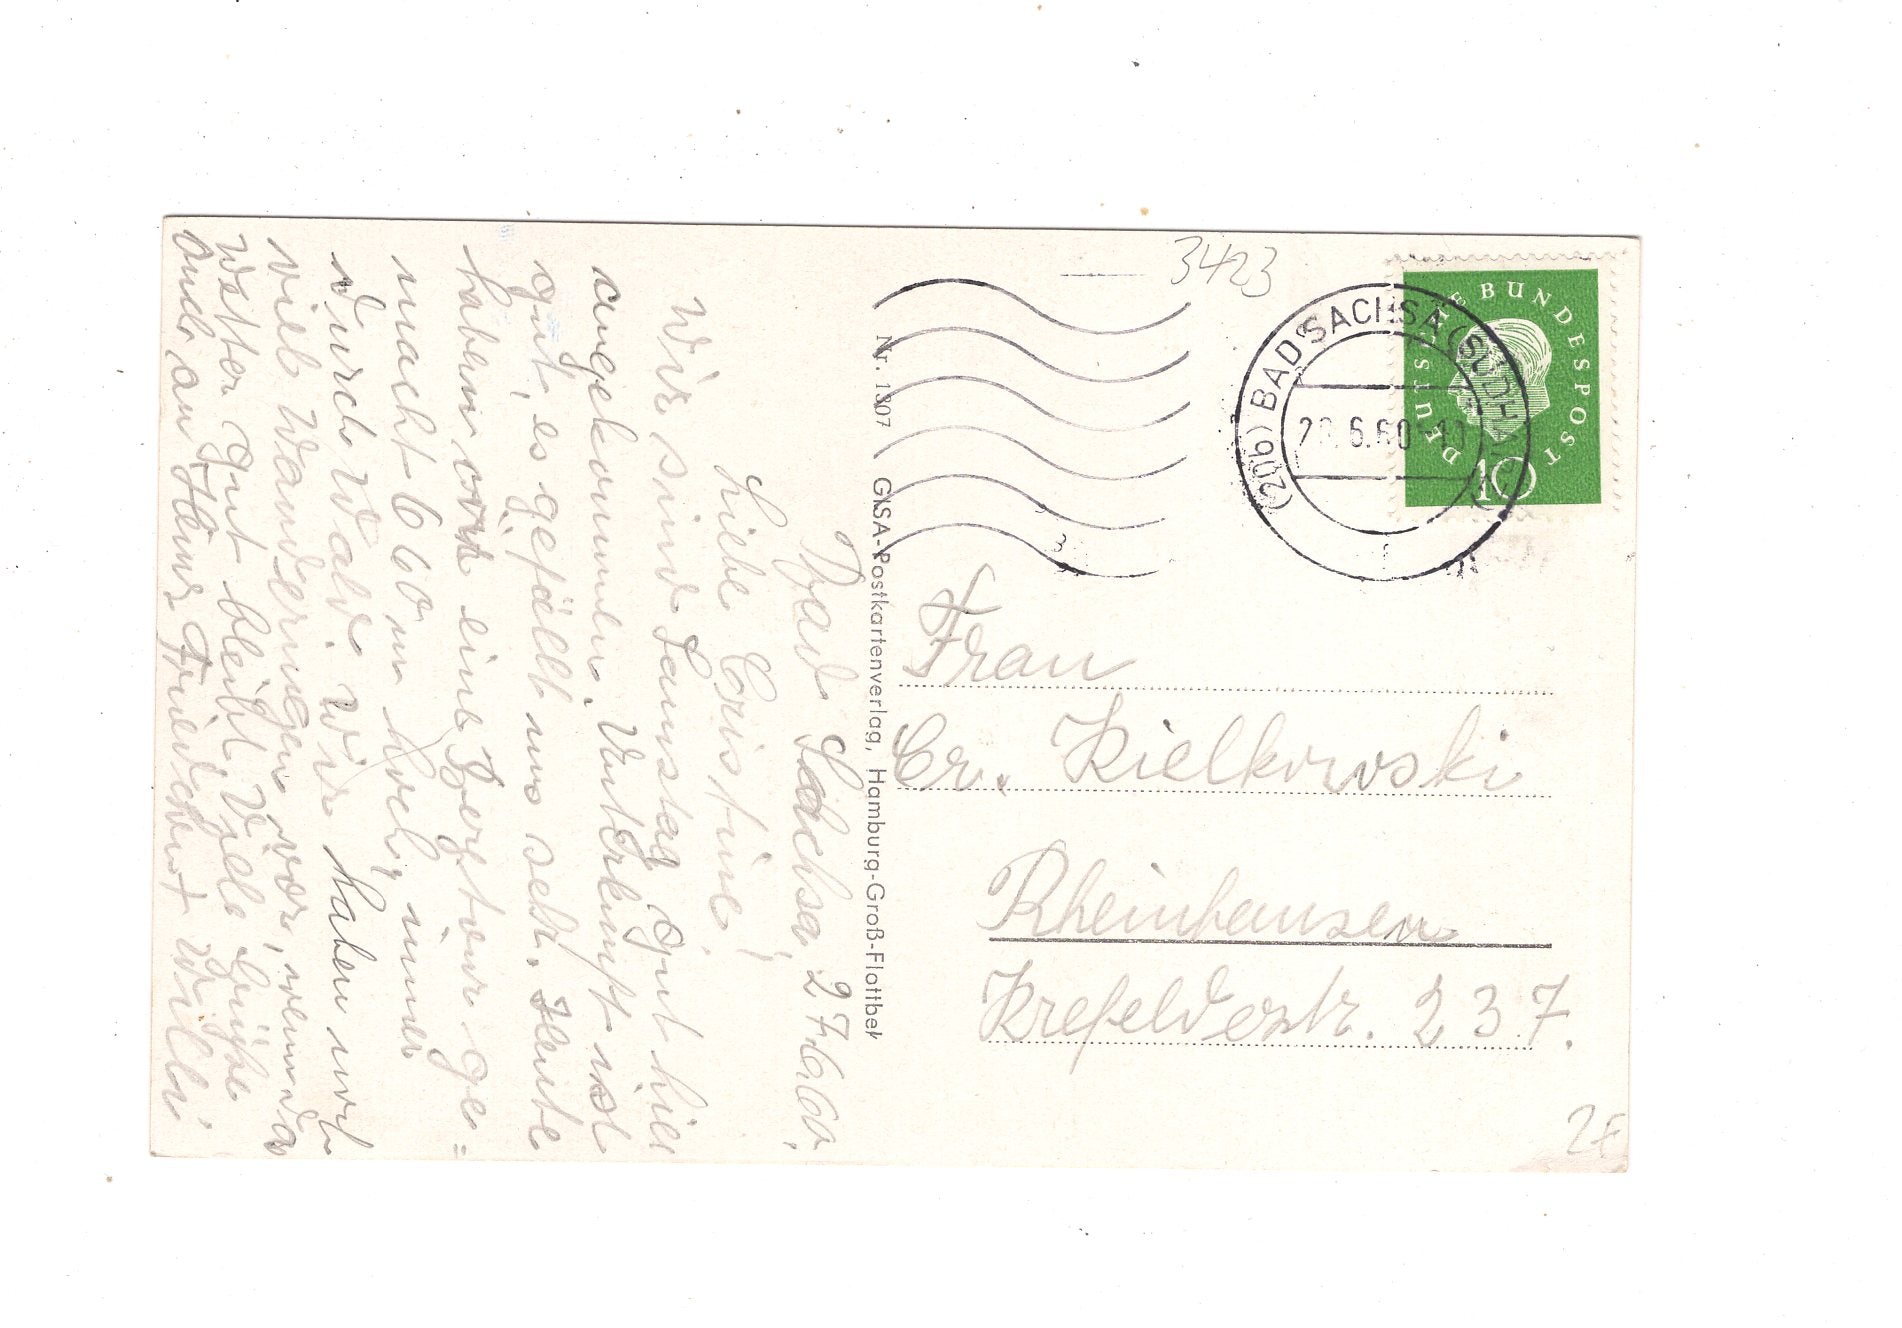 Bad Sachsa, 27.6.60.
Liebe Cristine!
Wir sind Samstag gut hier
angekommen. Unterkunft ist
gut, es gefällt uns sehr. Heute
haben wir eine Bergtour ge=
macht 660 m hoch, immer
durch Wald. Wir haben noch
viele Wanderungen vor, wenn das
Wetter gut bleibt. Viele Grüße
auch an Heinz Friedchen + Willi.
Nr. 1307 GISA-Postkartenverlag, Hamburg-Groß-Flottbek
3423
DEUTSCHE BUNDESPOST
10
(20b) BAD SACHSA (SÜDHARZ)
6.60-10
Frau
Cr. Kielkowski
Rheinhausen
Krefelderstr. 237.